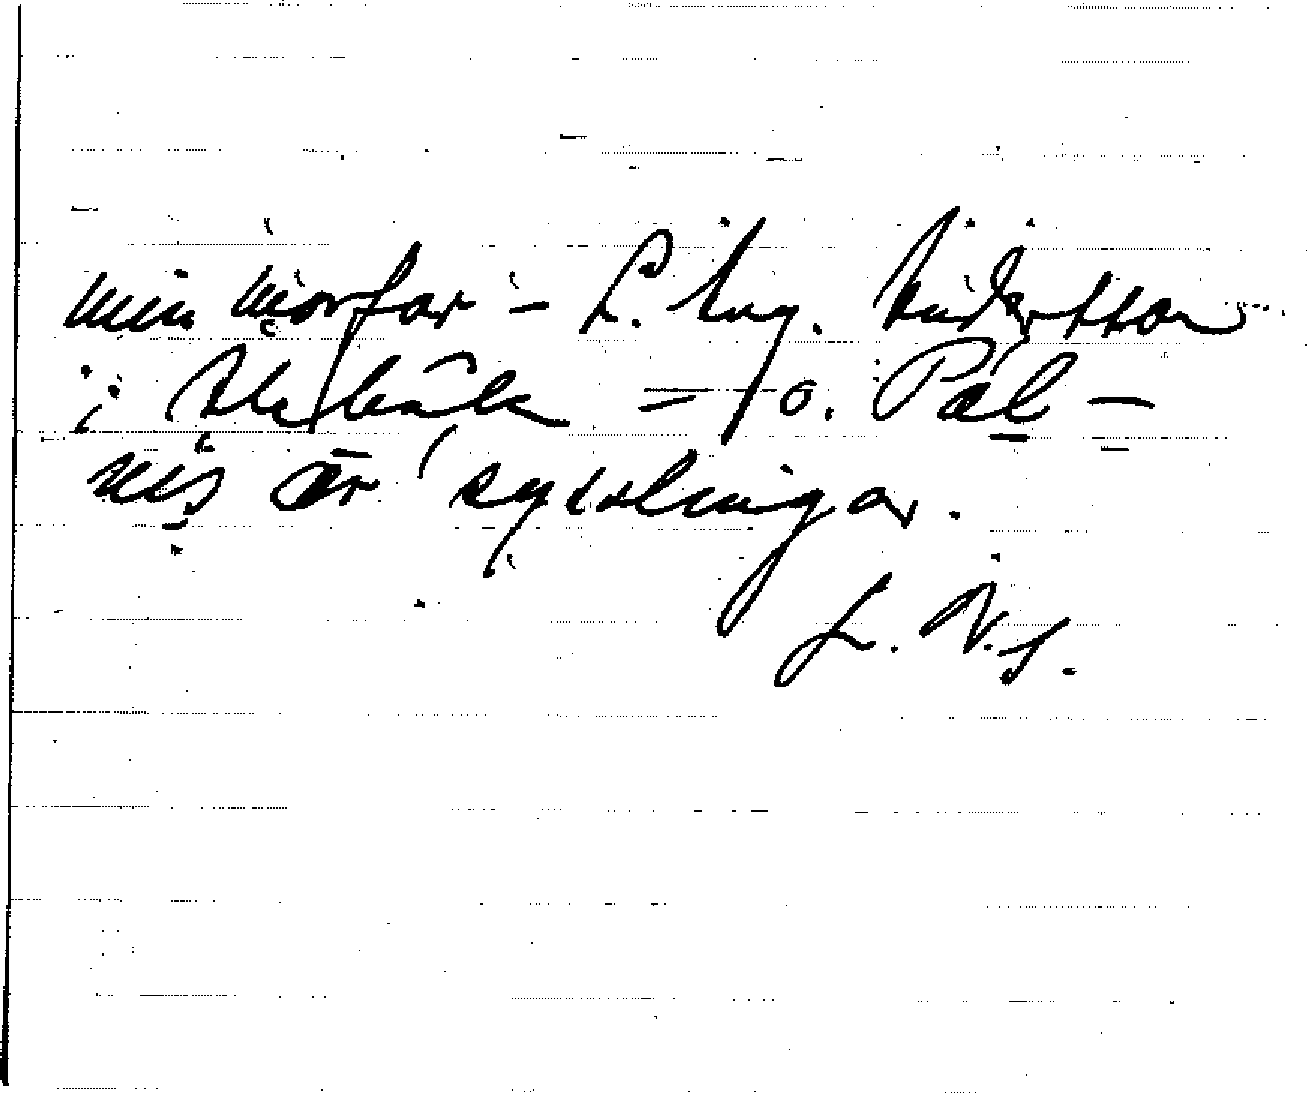 min morfar – L. Aug. Andersson
i Alebäck = o. Pål –
nis är sysslingar.
L. N. S.